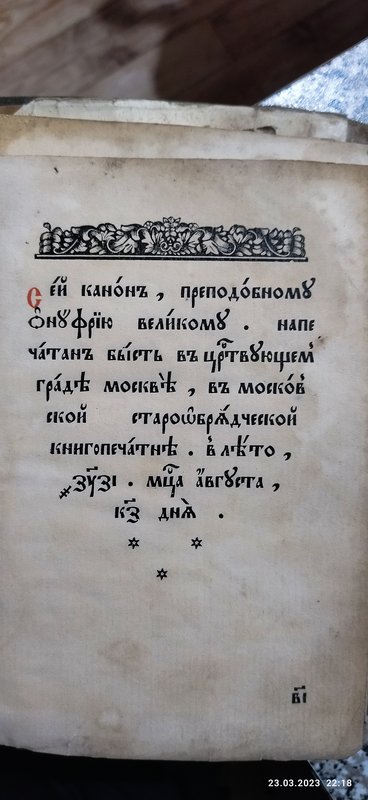 Се́й кано́нъ, преподо́бному
ѻ҆ну́фрїю вели́кому. напе
ча́танъ бы́сть въ црⷭ҇твующемъ
гра́дѣ москвѣ̀, въ моско́в
ской старообрѧ́дческой
книгопеча́тнѣ. в лѣ́то,
҂зу҃зі. мцⷭ҇а а҆́вгуста,
к҃з днѧ̀.
в҃і
23.03.2023 22:18